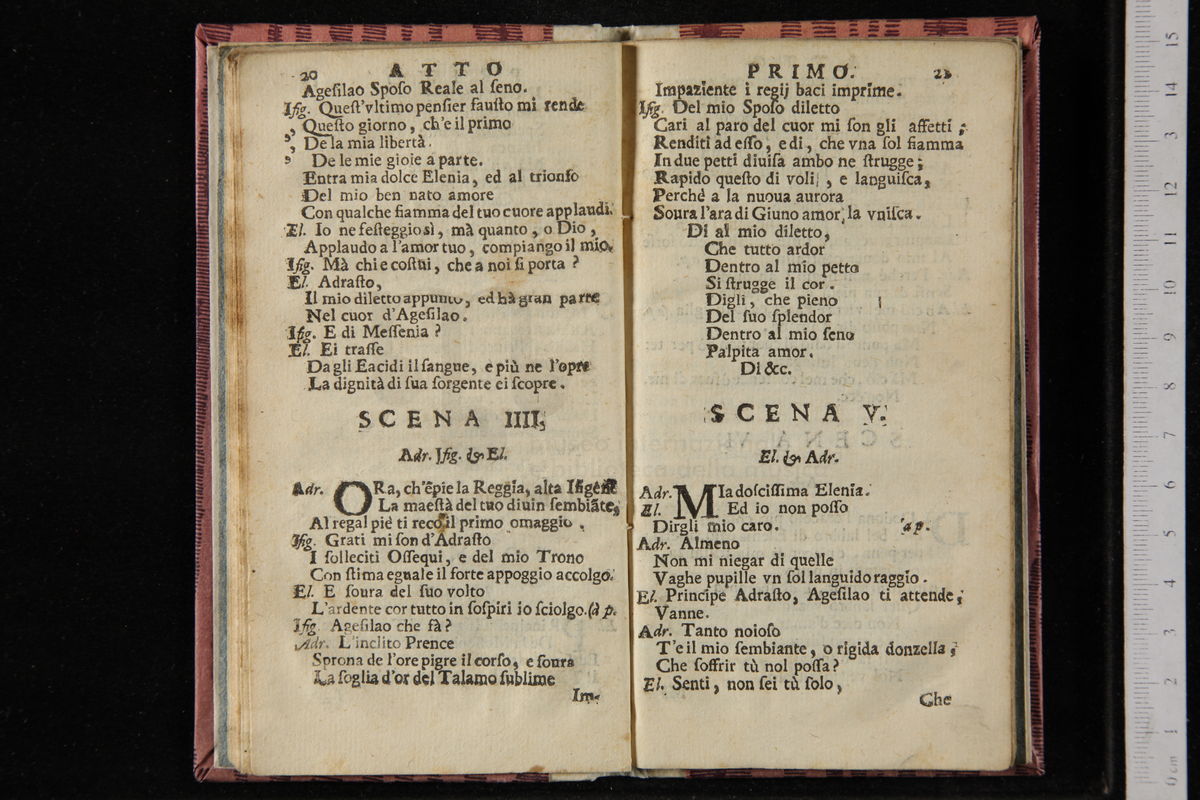 20 ATTO
Agesilao Sposo Reale al seno.
Ifig. Quest'vltimo pensier fausto mi rende
, Questo giorno, ch'e il primo
,, De la mia libertà.
, De le mie gioie a parte.
Entra mia dolce Elenia, ed al trionfo
Del mio ben nato amore
Con qualche fiamma del tuo cuore applaudi.
El. Io ne festeggio sì, mà quanto, o Dio,
Applaudo a l'amor tuo, compiango il mio.
Ifig. Mà chi e costui, che a noi si porta?
El. Adrasto,
Il mio diletto appunto, ed hà gran parte
Nel cuor d'Agesilao.
Ifig. E di Messenia?
El. Ei trasse
Da gli Eacidi il sangue, e più ne l'opre
La dignità di sua sorgente ei scopre.
SCENA IIII.
Adr. Ifig. & El.
Adr. ORa, ch'ēpie la Reggia, alta Ifigenia
La maestà del tuo diuin sembiāte,
Al regal piè ti reco il primo omaggio.
Ifig. Grati mi son d'Adrasto
I solleciti Ossequi, e del mio Trono
Con stima eguale il forte appoggio accolgo.
El. E soura del suo volto
L'ardente cor tutto in sospiri io sciolgo. (à p.
Ifig. Agesilao che fà?
Adr. L'inclito Prence
Sprona de l'ore pigre il corso, e soura
La soglia d'or del Talamo sublime
Im-
PRIMO. 21
Impaziente i regij baci imprime.
Ifig. Del mio Sposo diletto
Cari al paro del cuor mi son gli affetti;
Renditi ad esso, e di, che vna sol fiamma
In due petti diuisa ambo ne strugge;
Rapido questo di voli, e languisca,
Perchè a la nuoua aurora
Soura l'ara di Giuno amor la vnisca.
Di al mio diletto,
Che tutto ardor
Dentro al mio petto
Si strugge il cor.
Digli, che pieno
Del suo splendor
Dentro al mio seno
Palpita amor.
Di &c.
SCENA V.
El. & Adr.
Adr. MIa dolcissima Elenia.
El. Ed io non posso
Dirgli mio caro. a p.
Adr. Almeno
Non mi niegar di quelle
Vaghe pupille vn sol languido raggio.
El. Principe Adrasto, Agesilao ti attende,
Vanne.
Adr. Tanto noioso
T'e il mio sembiante, o rigida donzella,
Che soffrir tù nol possa?
El. Senti, non sei tù solo,
Che